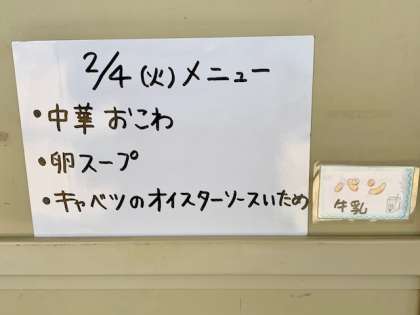 2/4(火)メニュー
・中華おこわ
・卵スープ
・キャベツのオイスターソースいため
パン
牛乳